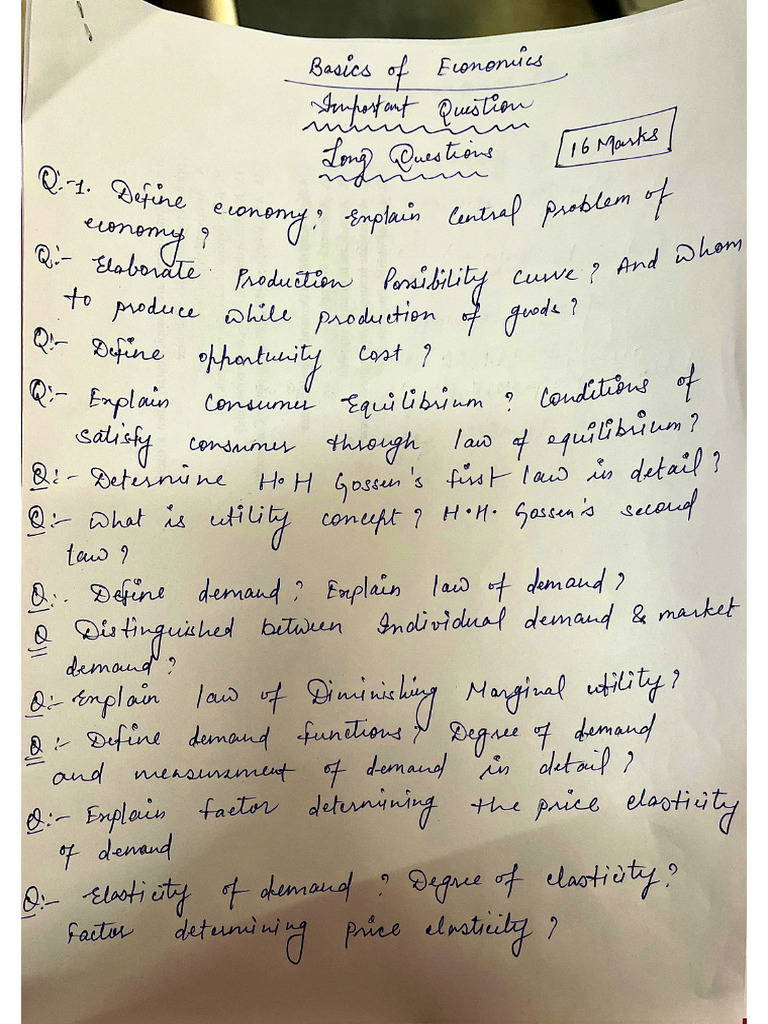 Basics of Economics
Important Question
Long Questions
16 Marks
Q:-1. Define economy? Explain Central problem of
economy?
Q:- Elaborate Production Possibility curve? And whom
to produce while production of goods?
Q:- Define opportunity cost?
Q:- Explain Consumer Equilibrium? Conditions of
satisfy consumer through law of equilibrium?
Q:- Determine H.H Gossen's first law in detail?
Q:- What is utility concept? H.H. Gossen's second
law?
Q:. Define demand? Explain law of demand?
Q Distinguished between Individual demand & market
demand?
Q:- Explain law of Diminishing Marginal utility?
Q:- Define demand functions? Degree of demand
and measursment of demand in detail?
Q:- Explain factor determining the price elasticity
of demand
Q:- Elasticity of demand? Degree of elasticity?
factor determining price elasticity?